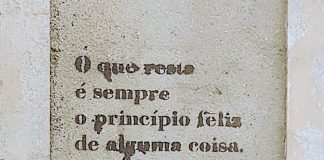 O que resta
é sempre
o princípio feliz
de alguma coisa.